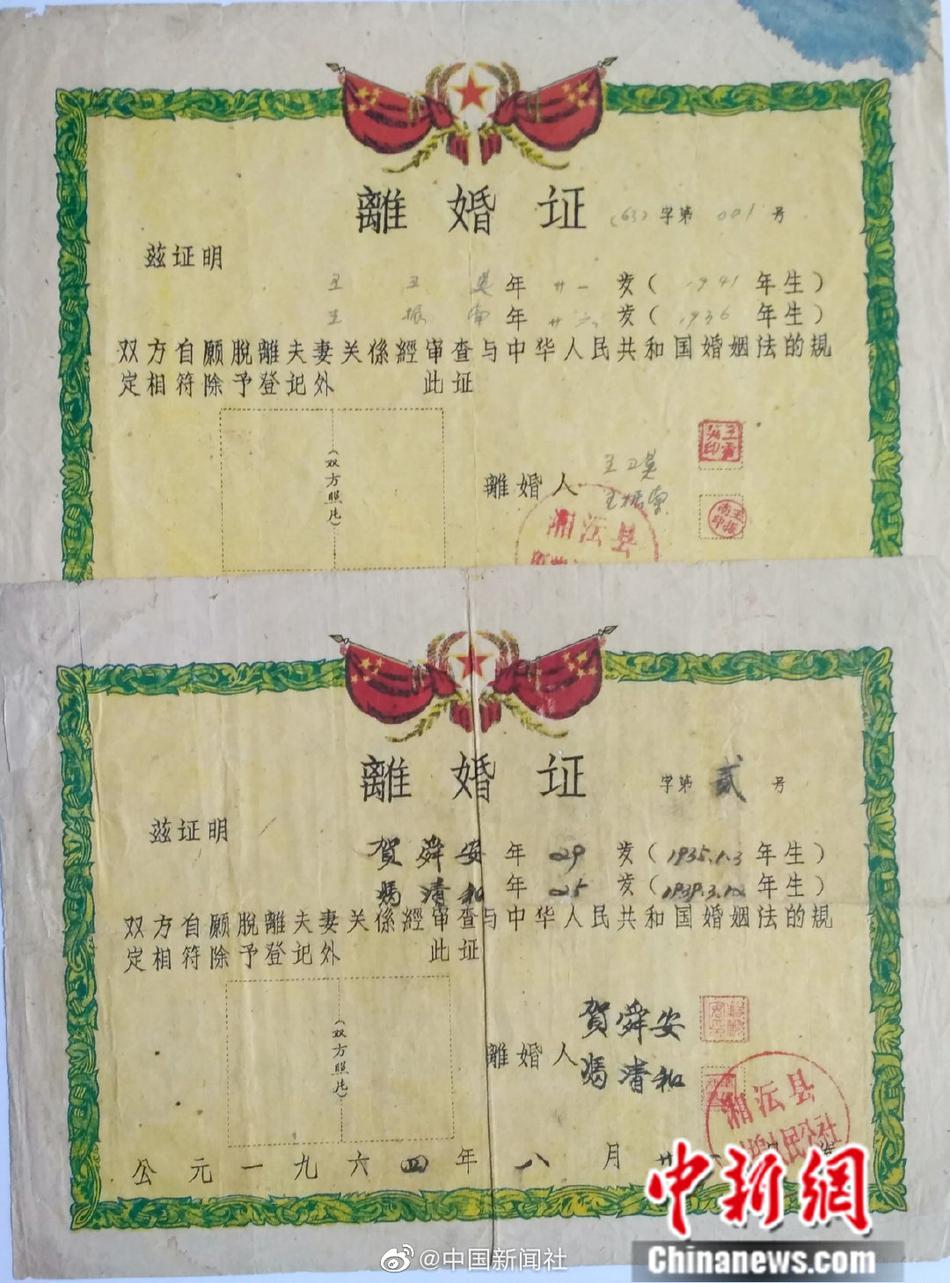 離婚证
(63)字第 001 号
兹证明
年 廿一 岁(1941年生)
王 振 南 年 廿六 岁(1936年生)
双方自願脱離夫妻关係經审查与中华人民共和国婚姻法的规
定相符除予登记外 此证
(双方照片)
離婚人
王振南
湘沄县
離婚证
字第 贰 号
兹证明
賀舜安 年 29 岁(1935.1.3年生)
馮清和 年 25 岁(1939.3.12年生)
双方自願脱離夫妻关係經审查与中华人民共和国婚姻法的规
定相符除予登记外 此证
(双方照片)
賀舜安
離婚人
馮清和
湘沄县
人民公社
公元一九六四年八月廿
中新網
Chinanews.com
@中国新闻社